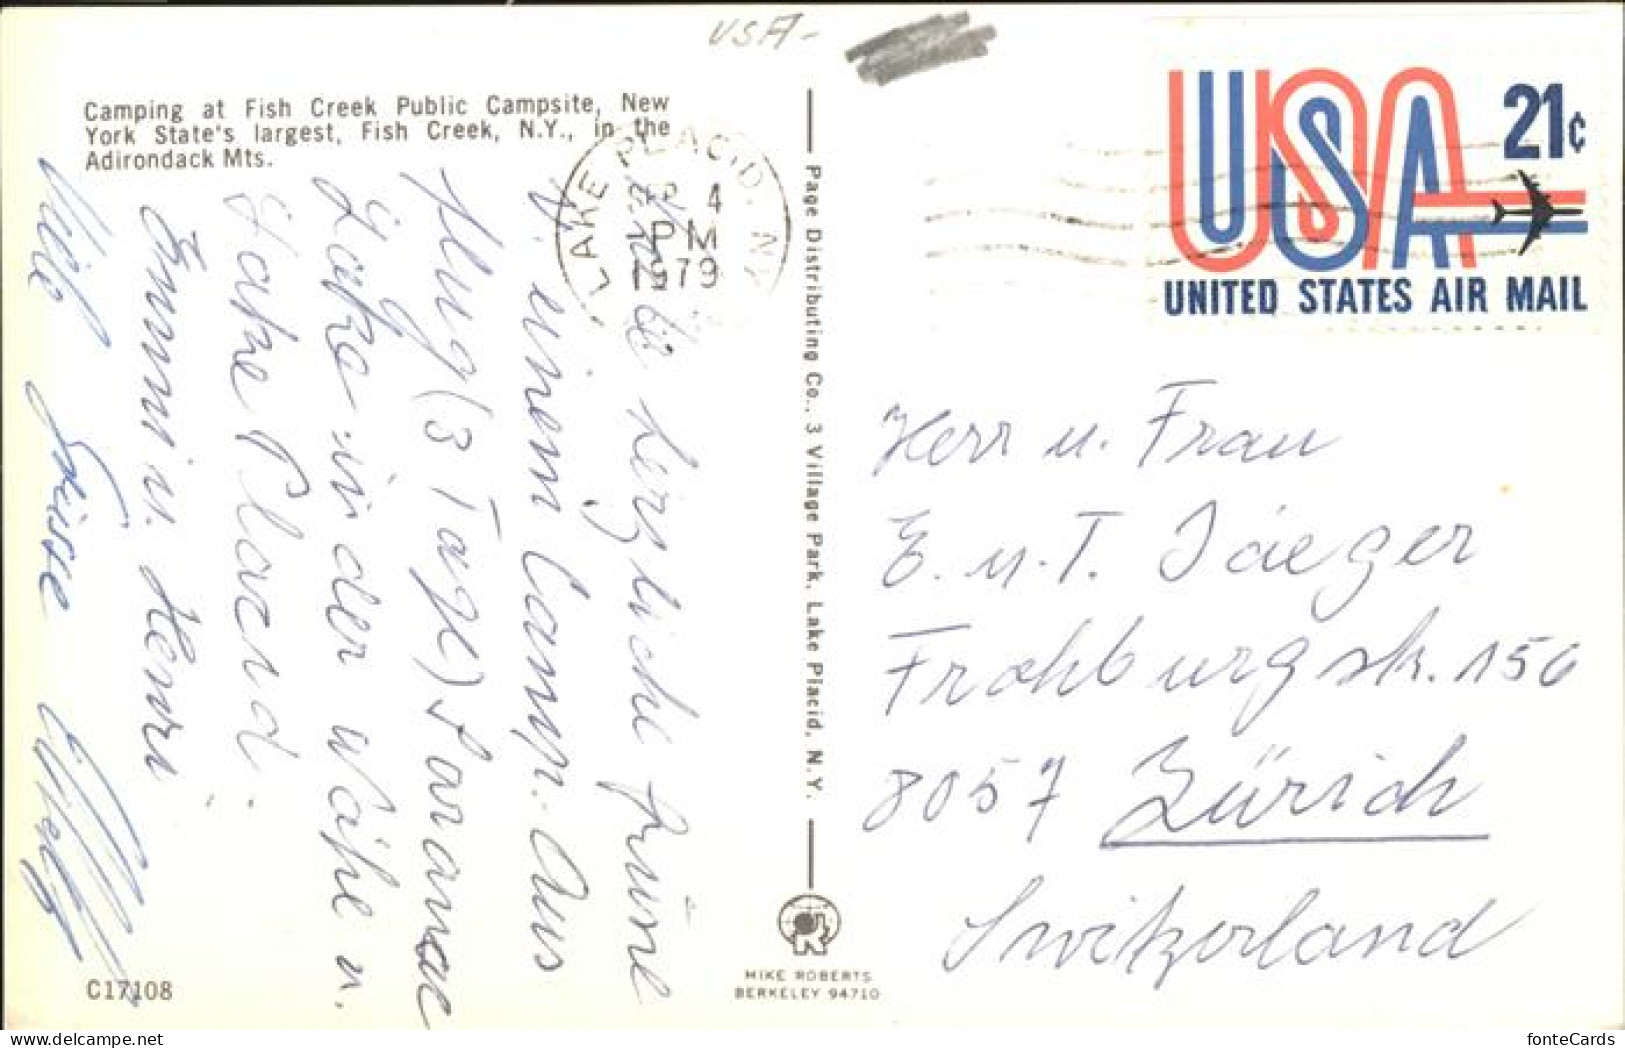 USA-
Camping at Fish Creek Public Campsite, New
York State's largest, Fish Creek, N.Y., in the
Adirondack Mts.
LAKE PLACID, NY
4
PM
1979
USA 21c
UNITED STATES AIR MAIL
herzliche Grüsse
v. einem Camp. Aus
flug (3 Tage) Saranac
Lake in der Nähe v.
Lake Placid.
Emmi u. Henri
Viele Grüsse
Page Distributing Co., 3 Village Park, Lake Placid, N.Y.
Herr u. Frau
E. u. T. Jaeger
Frohburgstr. 156
8057 Zürich
Switzerland
MIKE ROBERTS
BERKELEY 94710
C17108
fonteCards